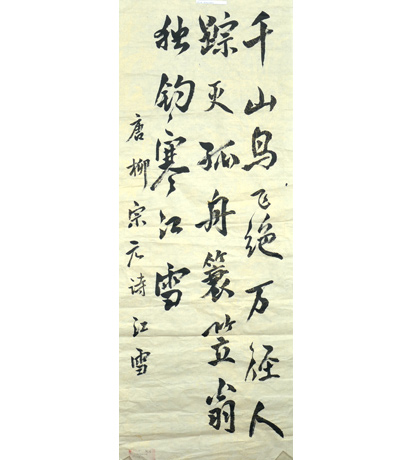 千山鸟飞绝万径人
踪灭孤舟蓑笠翁
独钓寒江雪
唐柳宗元诗江雪